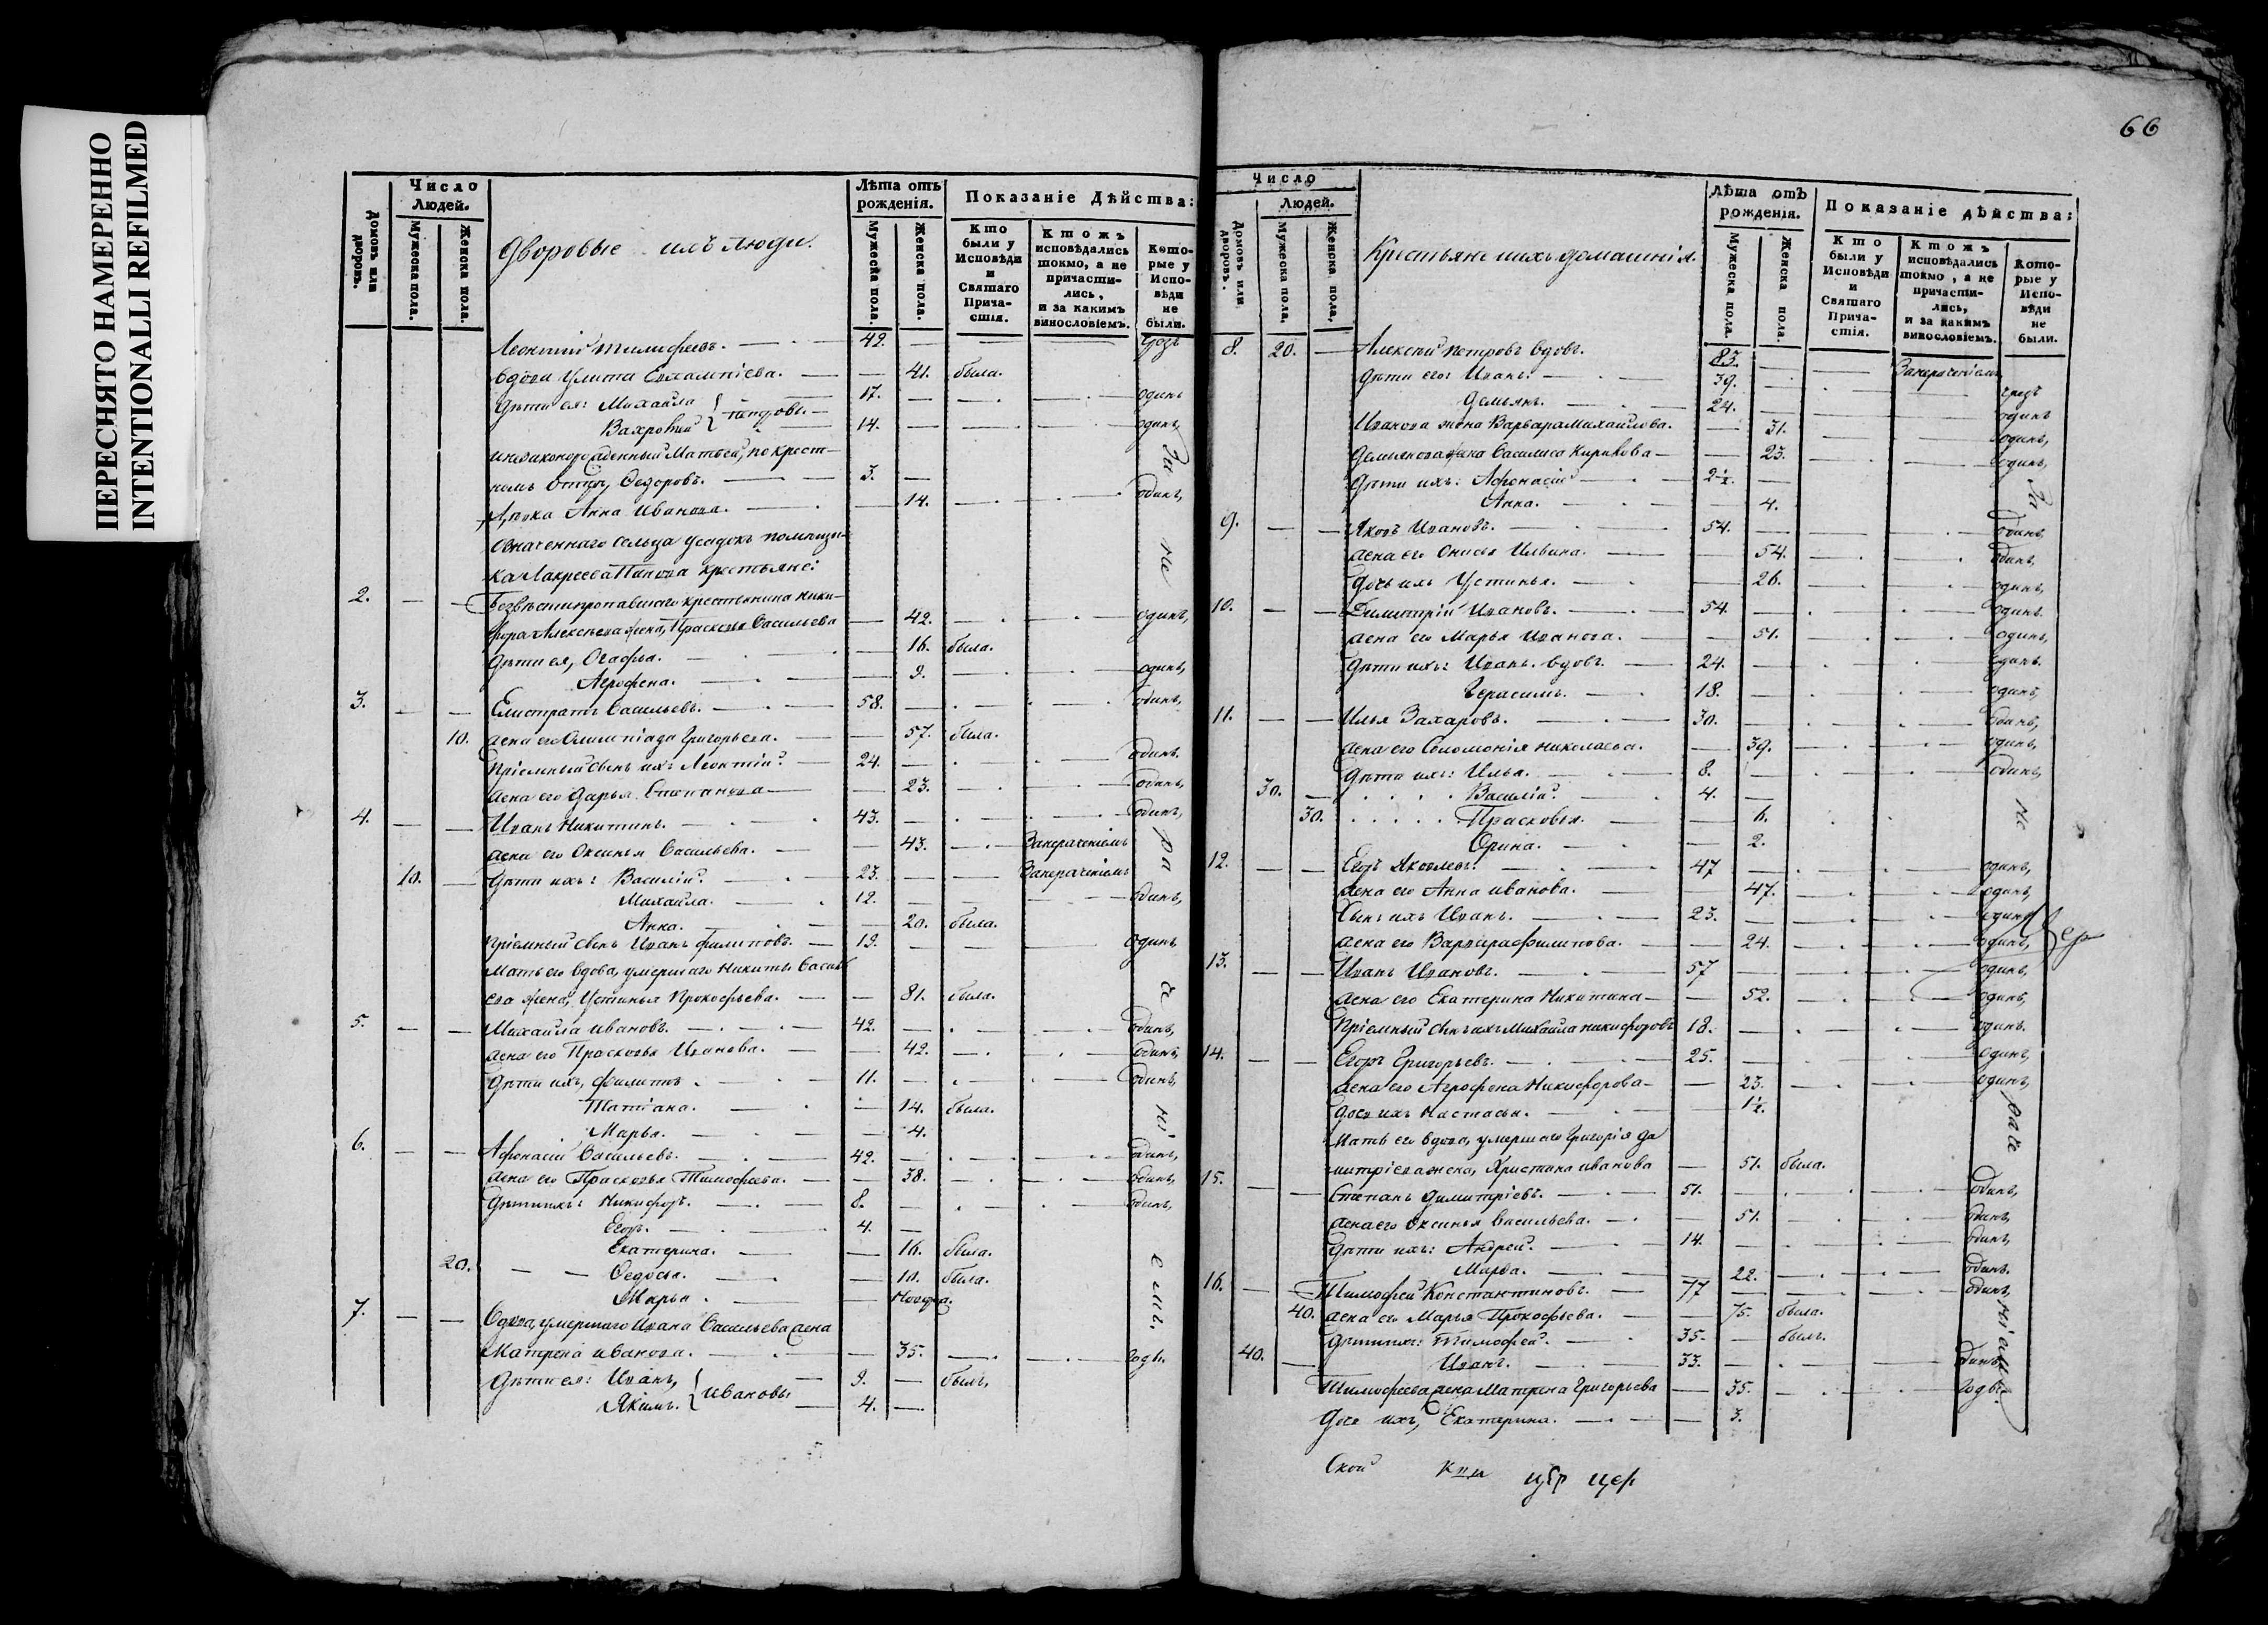 ПЕРЕСНЯТО НАМЕРЕННО
INTENTIONALLI REFILMED
Число Людей.
Домовъ или дворовъ.
Мужеска пола.
Женска пола.
Дворовые ихъ люди.
Лѣта отъ рожденія.
Мужеска пола.
Женска пола.
Показаніе Дѣйства:
Кто были у Исповѣди и Святаго Причастія.
Ктожъ исповѣдались токмо, а не причастились, и за какимъ винословіемъ.
Которые у Исповѣди не были.
Леонтий Тимофеевъ. 42.
вдова Улита Евлампіева. 41. была.
дѣти ея: Михайла 17. одинъ
Вахромий 14. одинъ
незаконорожденный Матвей, по крест-
номъ отцу, Федоровъ. 3.
Анна Иванова. 14. одинъ,
Означеннаго сельца помещи-
ка крестьяне:
2. Безвѣстнопропавшаго крестьянина Ники-
фора Алексѣева жена, Прасковья Васильева 42. одинъ,
дѣти ея, Агафья. 16. была.
Агрофена. 9. одинъ,
3. Елистратъ Васильевъ. 58. одинъ,
10. жена его Олимпіада Григорьева. 57. была.
Пріемный сынъ ихъ Леонтій. 24. одинъ.
жена его Дарья Степанова 23. одинъ,
4. Иванъ Никитинъ. 43. одинъ,
жена его Оксинья Васильева. 43. Запераченіемъ
10. дѣти ихъ: Василій. 23. Запераченіемъ
Михайла. 12. одинъ,
Анна. 20. была.
Пріемный сынъ Иванъ Филиповъ. 19. одинъ
Мать его вдова, умершаго Никиты Василь
ева жена, Устинья Прокофьева. 81. была.
5. Михайла Ивановъ. 42. одинъ,
жена его Прасковья Иванова. 42. одинъ,
дѣти ихъ, Филипъ. 11. одинъ,
Татіана. 14. была.
Марья. 4.
6. Афонасій Васильевъ. 42. одинъ,
жена его Прасковья Тимофеева. 38. одинъ,
дѣти ихъ: Никифоръ. 8. одинъ,
Егоръ. 4.
Екатерина. 16. была.
20. Федосья. 10. была.
Марья.
7. Вдова, умершаго Ивана Васильева жена
Матрена Иванова. 35. годы.
дѣти ея: Иванъ, 9. былъ,
Якимъ. Ивановы 4.
За не ра че ні емъ.
66
Число Людей.
Домовъ или дворовъ.
Мужеска пола.
Женска пола.
Крестьяне ихъ домашнія.
Лѣта отъ рожденія.
Мужеска пола.
Женска пола.
Показаніе дѣйства:
Кто были у Исповѣди и Святаго Причастія.
Ктожъ исповѣдались токмо, а не причастились, и за какимъ винословіемъ.
Которые у Исповѣди не были.
8. 20. Алексѣй Петровъ вдовъ. 83. Запераченіемъ
дѣти его: Иванъ. 39.
Демьянъ. 24. одинъ
Иванова жена Варвара Михайлова. 31. одинъ,
Демьянова жена Василиса Кирикова 23. одинъ,
дѣти ихъ: Афонасій
Анна. 4.
9. Яковъ Ивановъ. 54. одинъ,
жена его Онисья Ильина. 54. одинъ,
дочь ихъ Устинья. 26. одинъ,
10. Димитрій Ивановъ. 54. одинъ.
жена его Марья Иванова. 51. одинъ,
дѣти ихъ: Иванъ вдовъ. 24. одинъ.
Герасимъ. 18. одинъ,
11. Илья Захаровъ. 30. одинъ,
жена его Соломонія Николаева. 39. одинъ,
дѣти ихъ: Илья. 8. одинъ,
30. Василій. 4.
30. Прасковья. 6.
Орина. 2.
12. Егоръ Яковлевъ. 47 одинъ,
жена его Анна Иванова. 47. одинъ,
Сынъ ихъ Иванъ. 23. одинъ
жена его Варвара Филипова. 24. одинъ,
13. Иванъ Ивановъ. 57 одинъ,
жена его Екатерина Никитина 52. одинъ,
Пріемный сынъ ихъ Михайла Никифоровъ 18. одинъ.
14. Егоръ Григорьевъ. 25. одинъ,
жена его Агрофена Никифорова 23. одинъ,
дочь ихъ Настасья.
Мать его вдова, умершаго Григорія Ди
митріева жена, Христина Иванова 51. была.
15. Степанъ Димитріевъ. 51. одинъ,
жена его Оксинья Васильева. 51. одинъ,
дѣти ихъ: Андрей. 14. одинъ,
Марья. 22. одинъ.
16. Тимофей Константиновъ. 77 одинъ,
40. жена его Марья Прокофьева. 75. была.
дѣти ихъ: Тимофей. 35. былъ.
40. Иванъ. 33. одинъ,
Тимофеева жена Матрена Григорьева 35. годы.
Дочь ихъ, Екатерина. 3.
За не раче ніемъ.